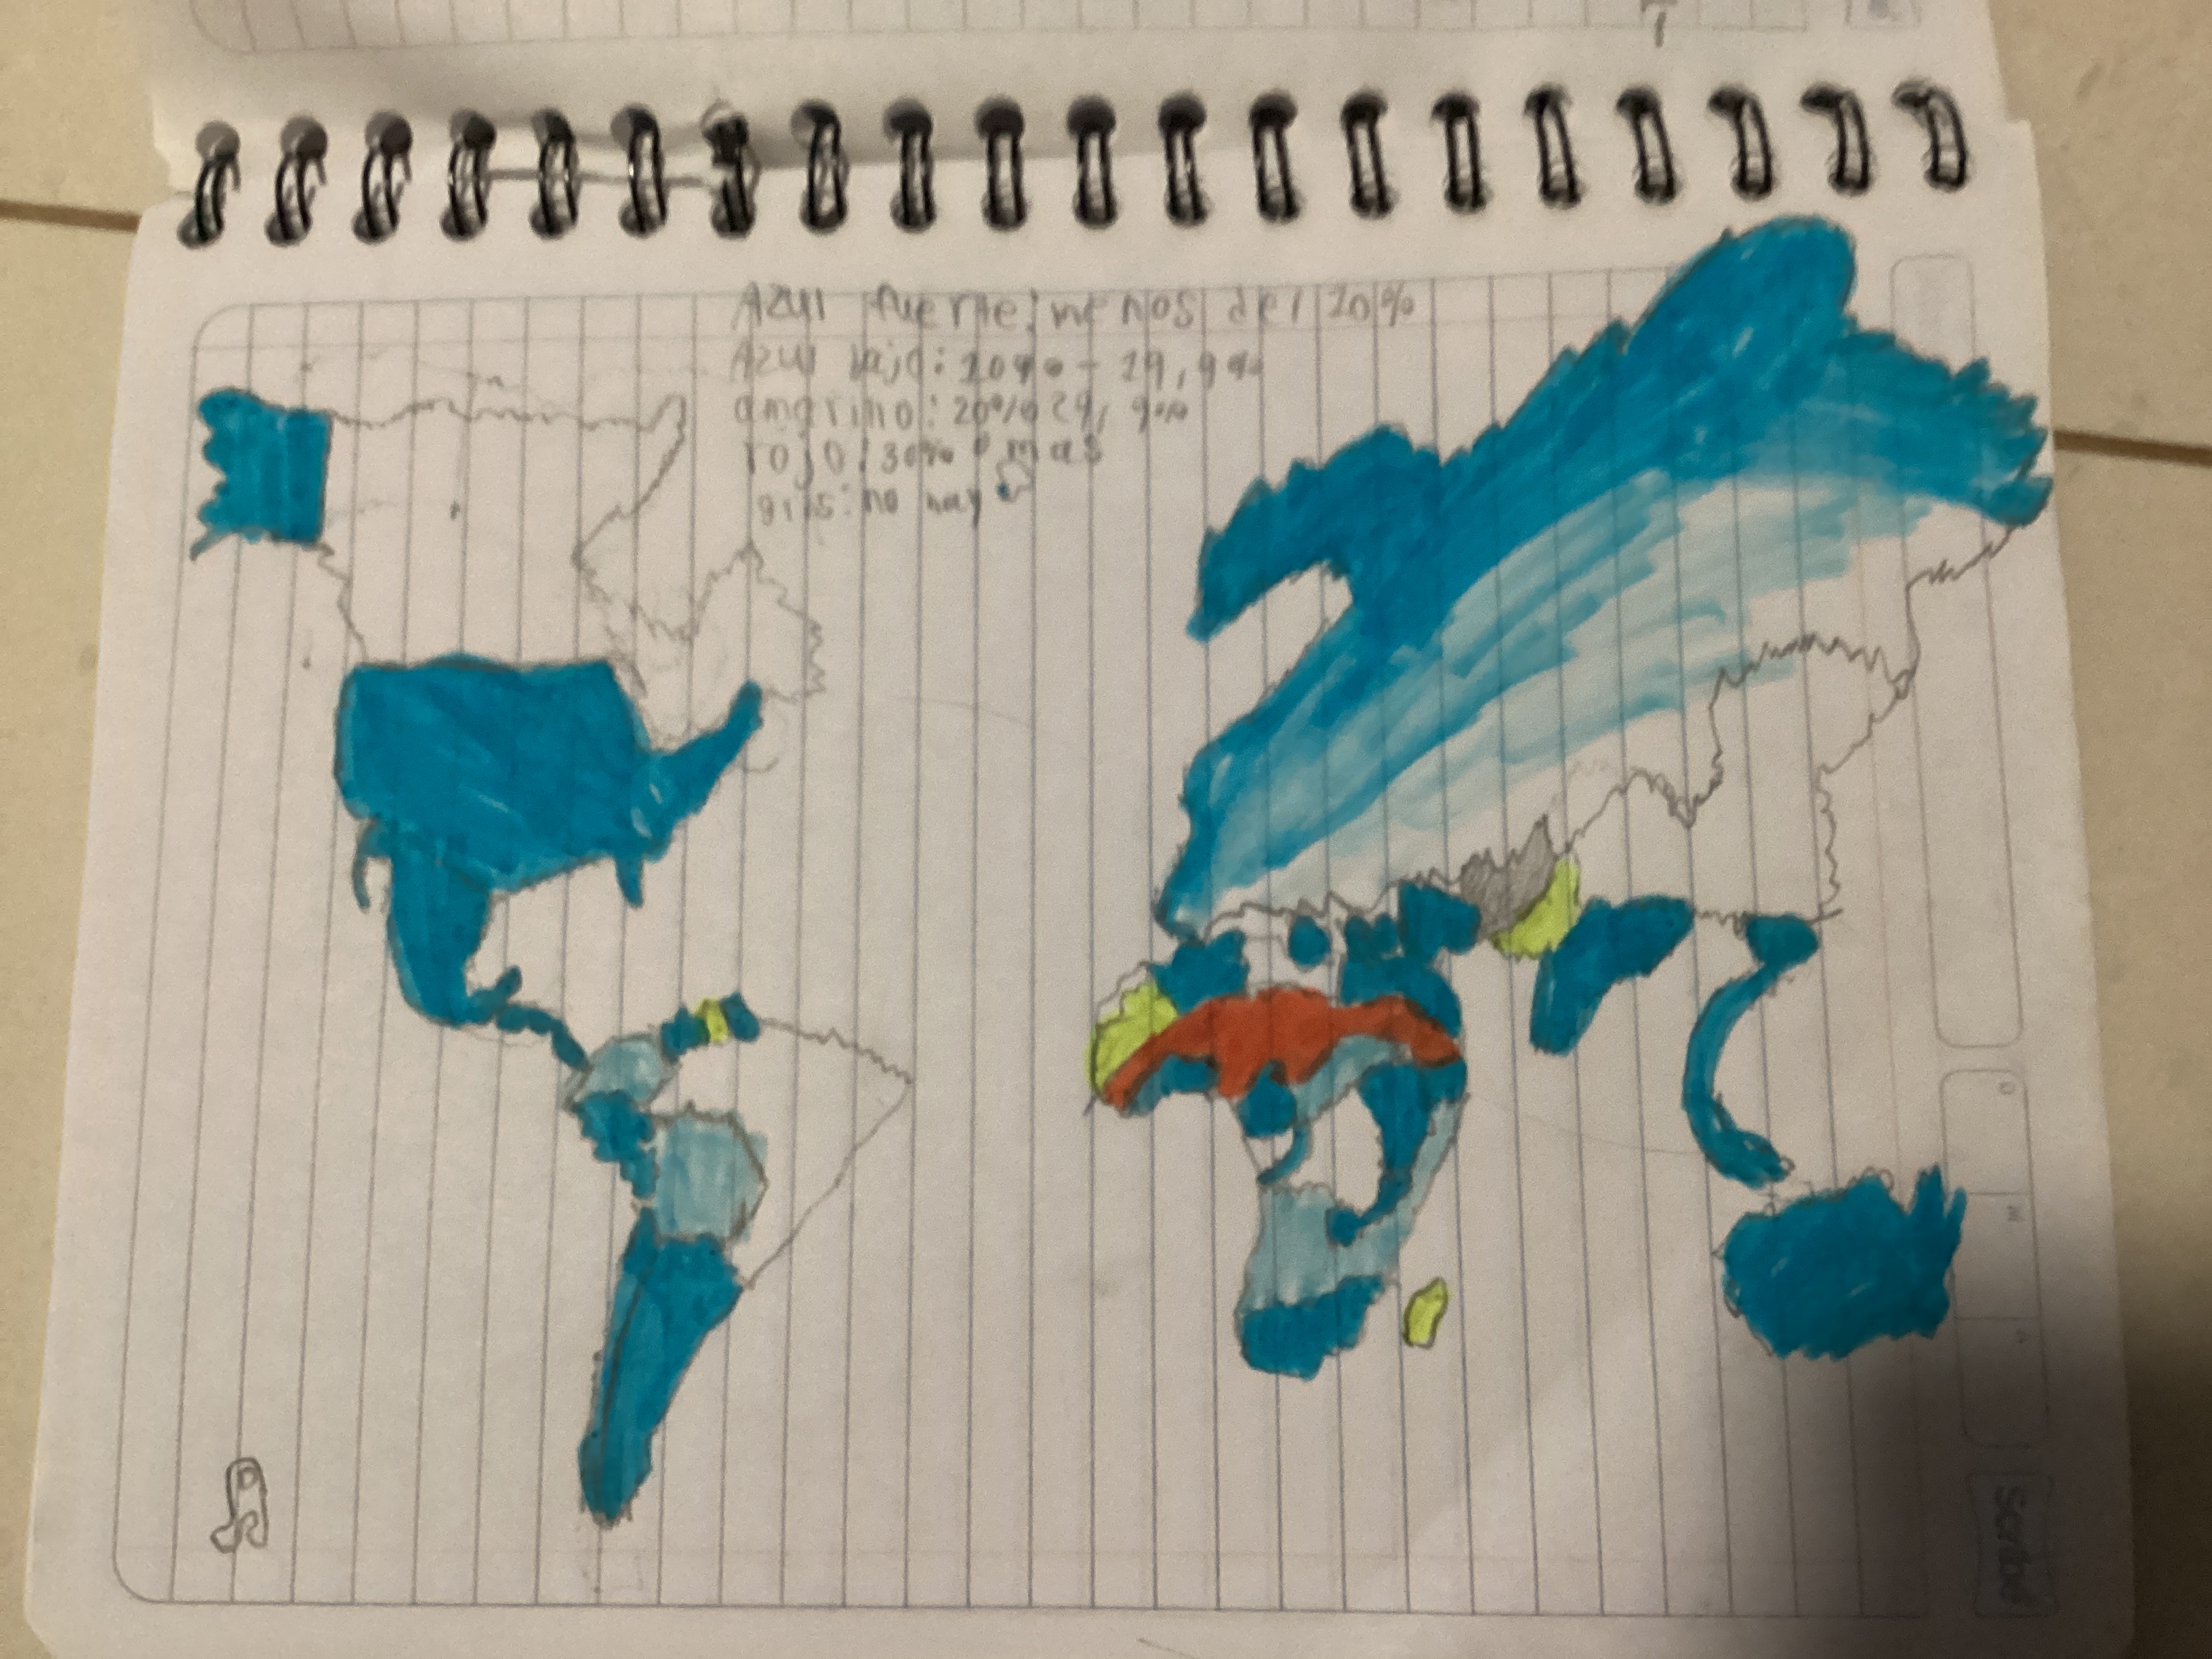 Azul fuerte: menos del 10%
Azul bajo: 10% - 19,9%
amarillo: 20% 29, 9%
rojo: 30% o mas
gris: no hay
Scribe